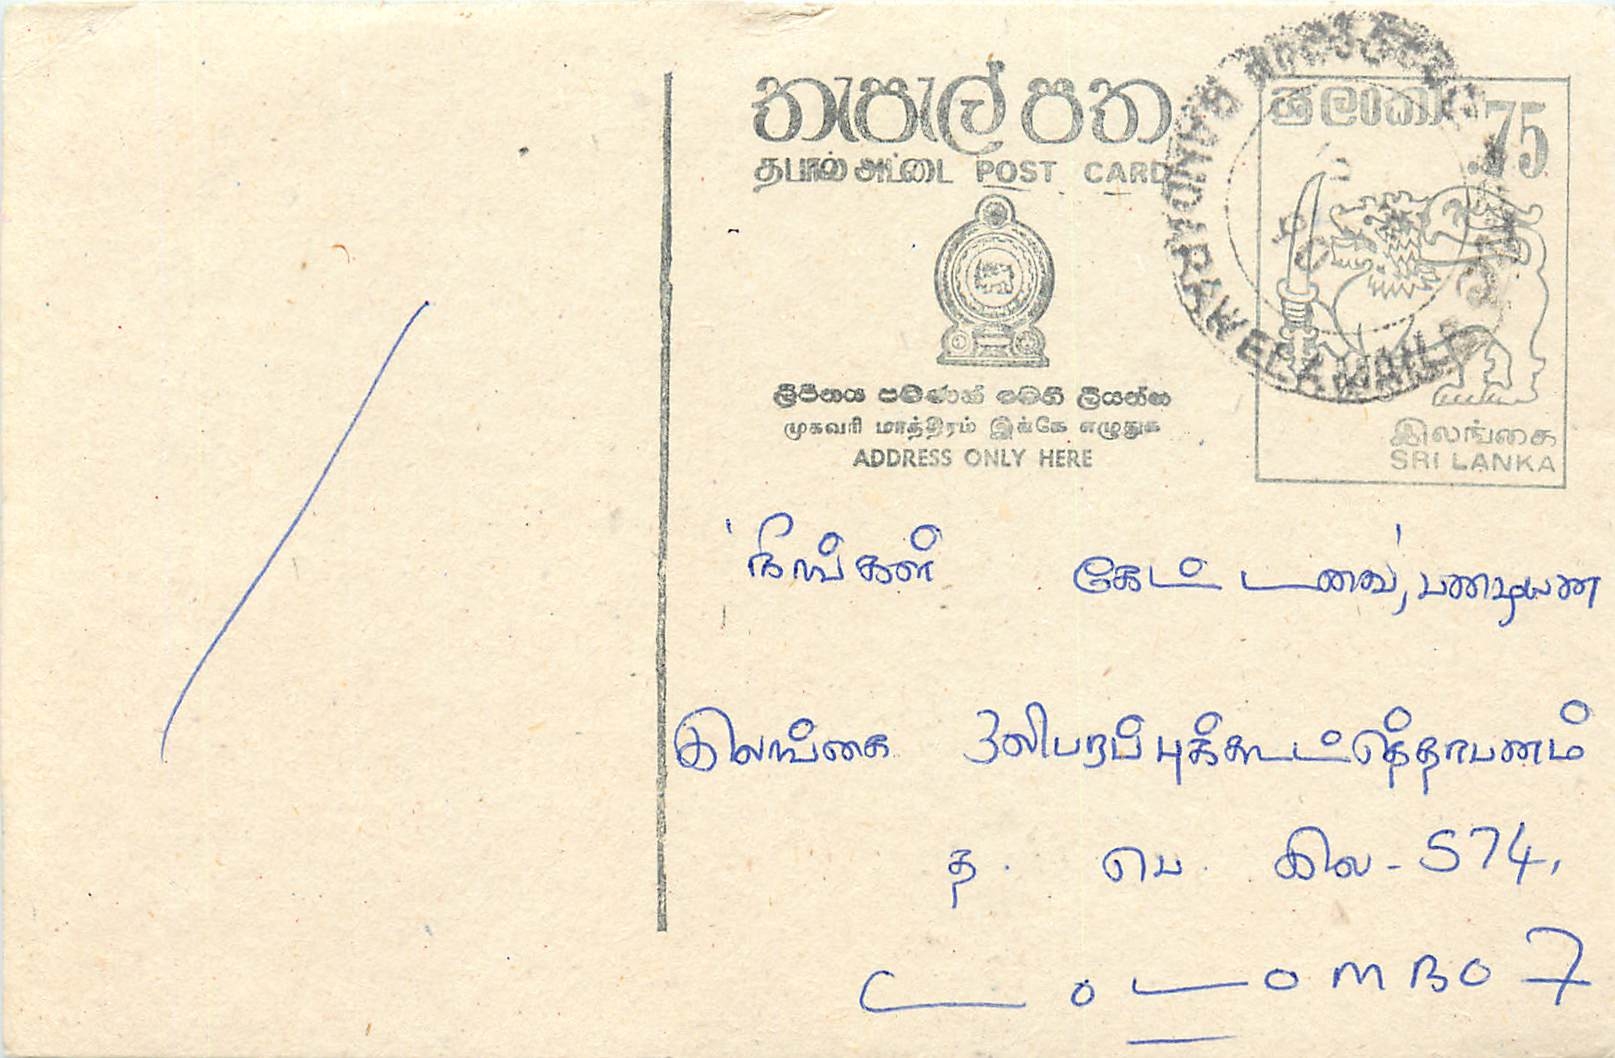 තැපැල් පත
தபால் அட்டை POST CARD
ශ්‍රී ලංකා .75
ලිපිනය පමණක් මෙහි ලියන්න
முகவரி மாத்திரம் இங்கே எழுதுக
ADDRESS ONLY HERE
இலங்கை
SRI LANKA
'நீங்கள் கேட்டவை',
இலங்கை ஒலிபரப்புக்கூட்டுத்தாபனம்
த. பெ. இல - 574,
COLOMBO 7